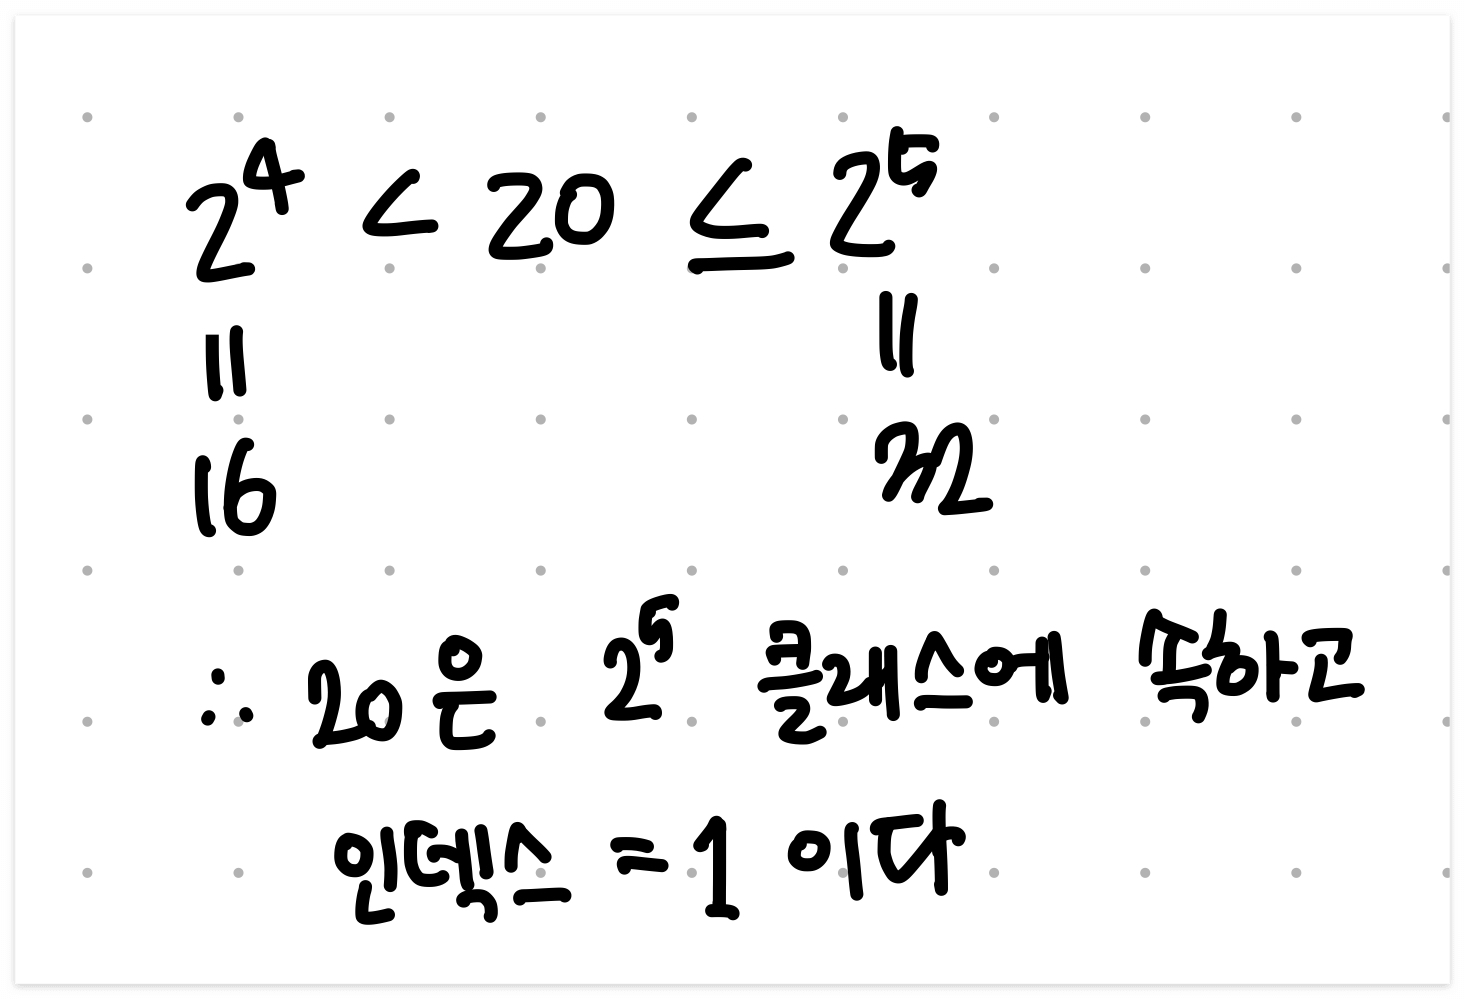 2⁴ < 20 ≤ 2⁵
= =
16 32
∴ 20은 2⁵ 클래스에 속하고
인덱스 = 1 이다